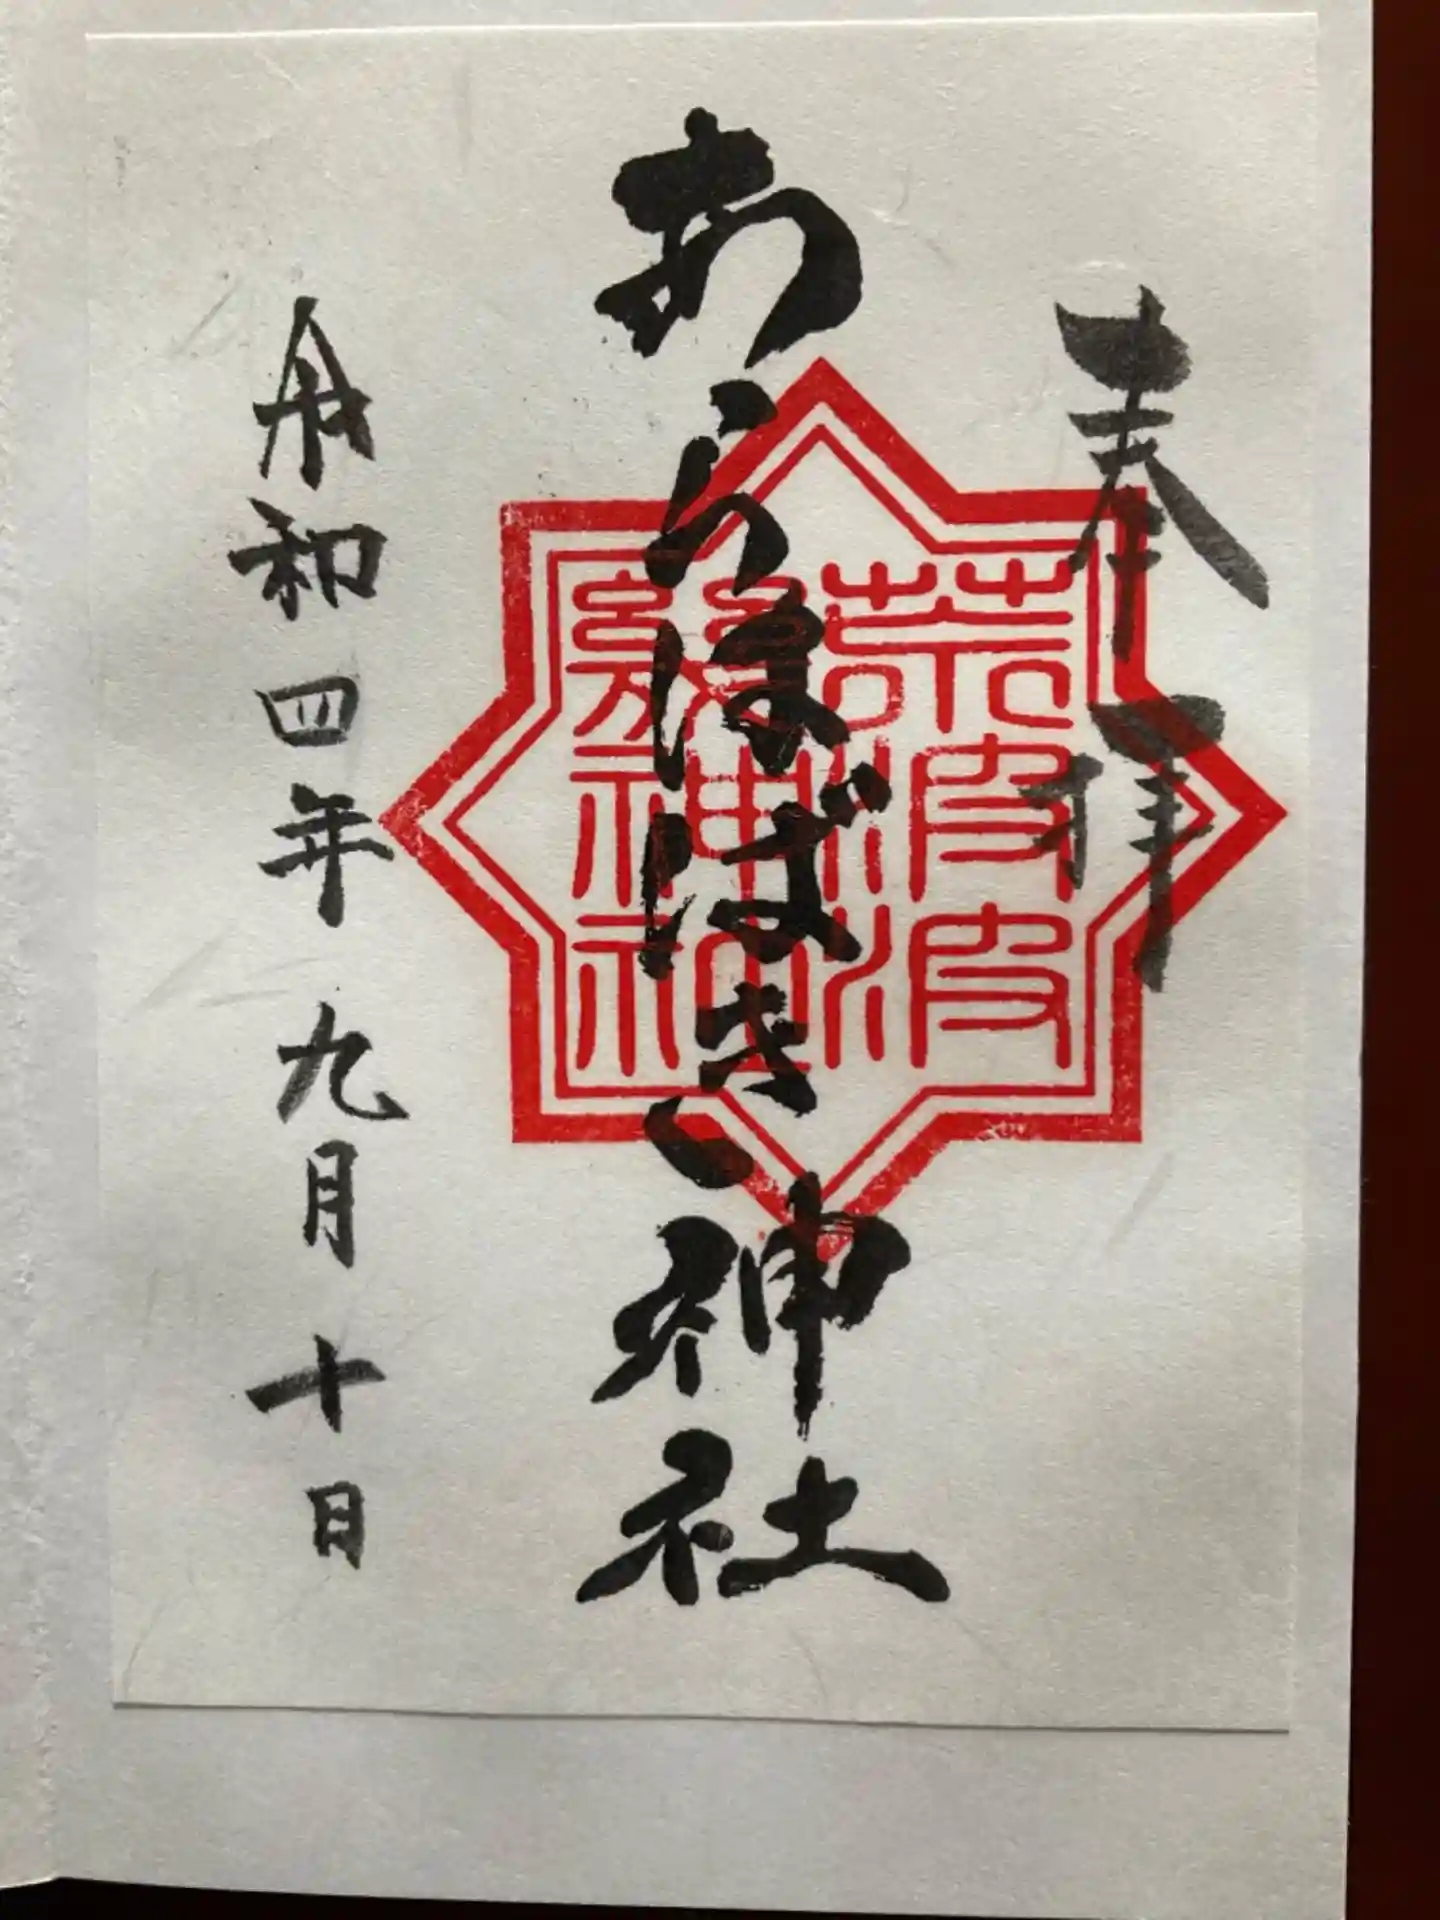 奉拝
あらはばき神社
令和四年九月十日
荒波波
幾神社